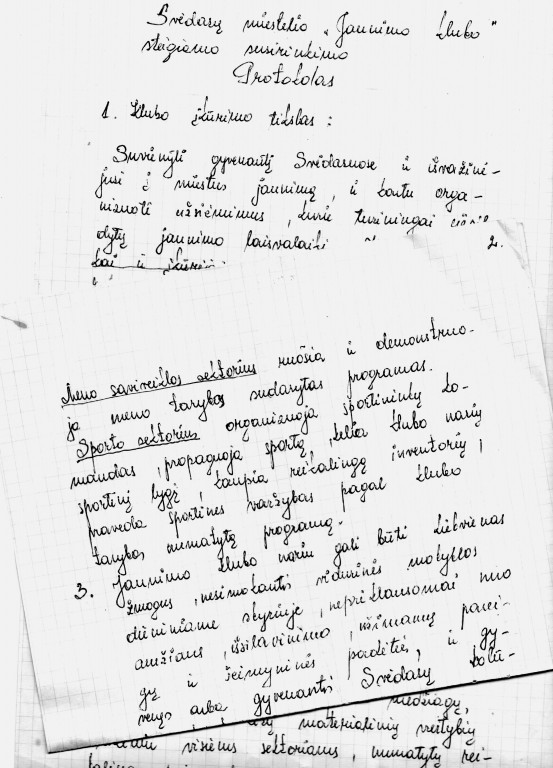 Svėdasų miestelio „Jaunimo klubo"
steigiamo susirinkimo
Protokolas
1. Klubo įkūrimo tikslas:
Suvienyti gyvenantį Svėdasuose ir išvažinė-
jusį į miestus jaunimą, ir kartu orga-
nizuoti užsiėmimus, kurie turiningai
jaunimo laisvalaikį
2.
Meno saviveiklos sektorius ruošia ir demonstruo-
ja meno tarybos sudarytas programas.
Sporto sektorius organizuoja sportininkų ko-
mandas, propaguoja sportą, kelia klubo narių
sportinį lygį, kaupia reikalingą inventorių,
praveda sportines varžybas pagal klubo
tarybos numatytą programą.
3. Jaunimo klubo nariu gali būti kiekvienas
žmogus, nesimokantis vidurinės mokyklos
dieniniame skyriuje, nepriklausomai nuo
amžiaus, išsilavinimo, užimamų parei-
gų ir šeimyninės padėties, ir gy-
venęs arba gyvenantis Svėdasų
medžiagų,
materialinių vertybių
visiems sektoriams, numatytų rei-